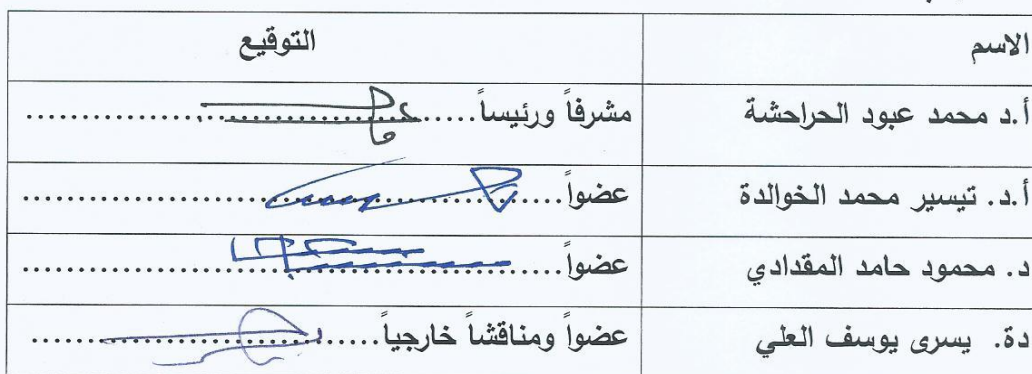 الاسم التوقيع
أ.د محمد عبود الحراحشة مشرفاً ورئيساً......................................
أ.د. تيسير محمد الخوالدة عضواً......................................
د. محمود حامد المقدادي عضواً......................................
دة. يسرى يوسف العلي عضواً ومناقشاً خارجياً......................................